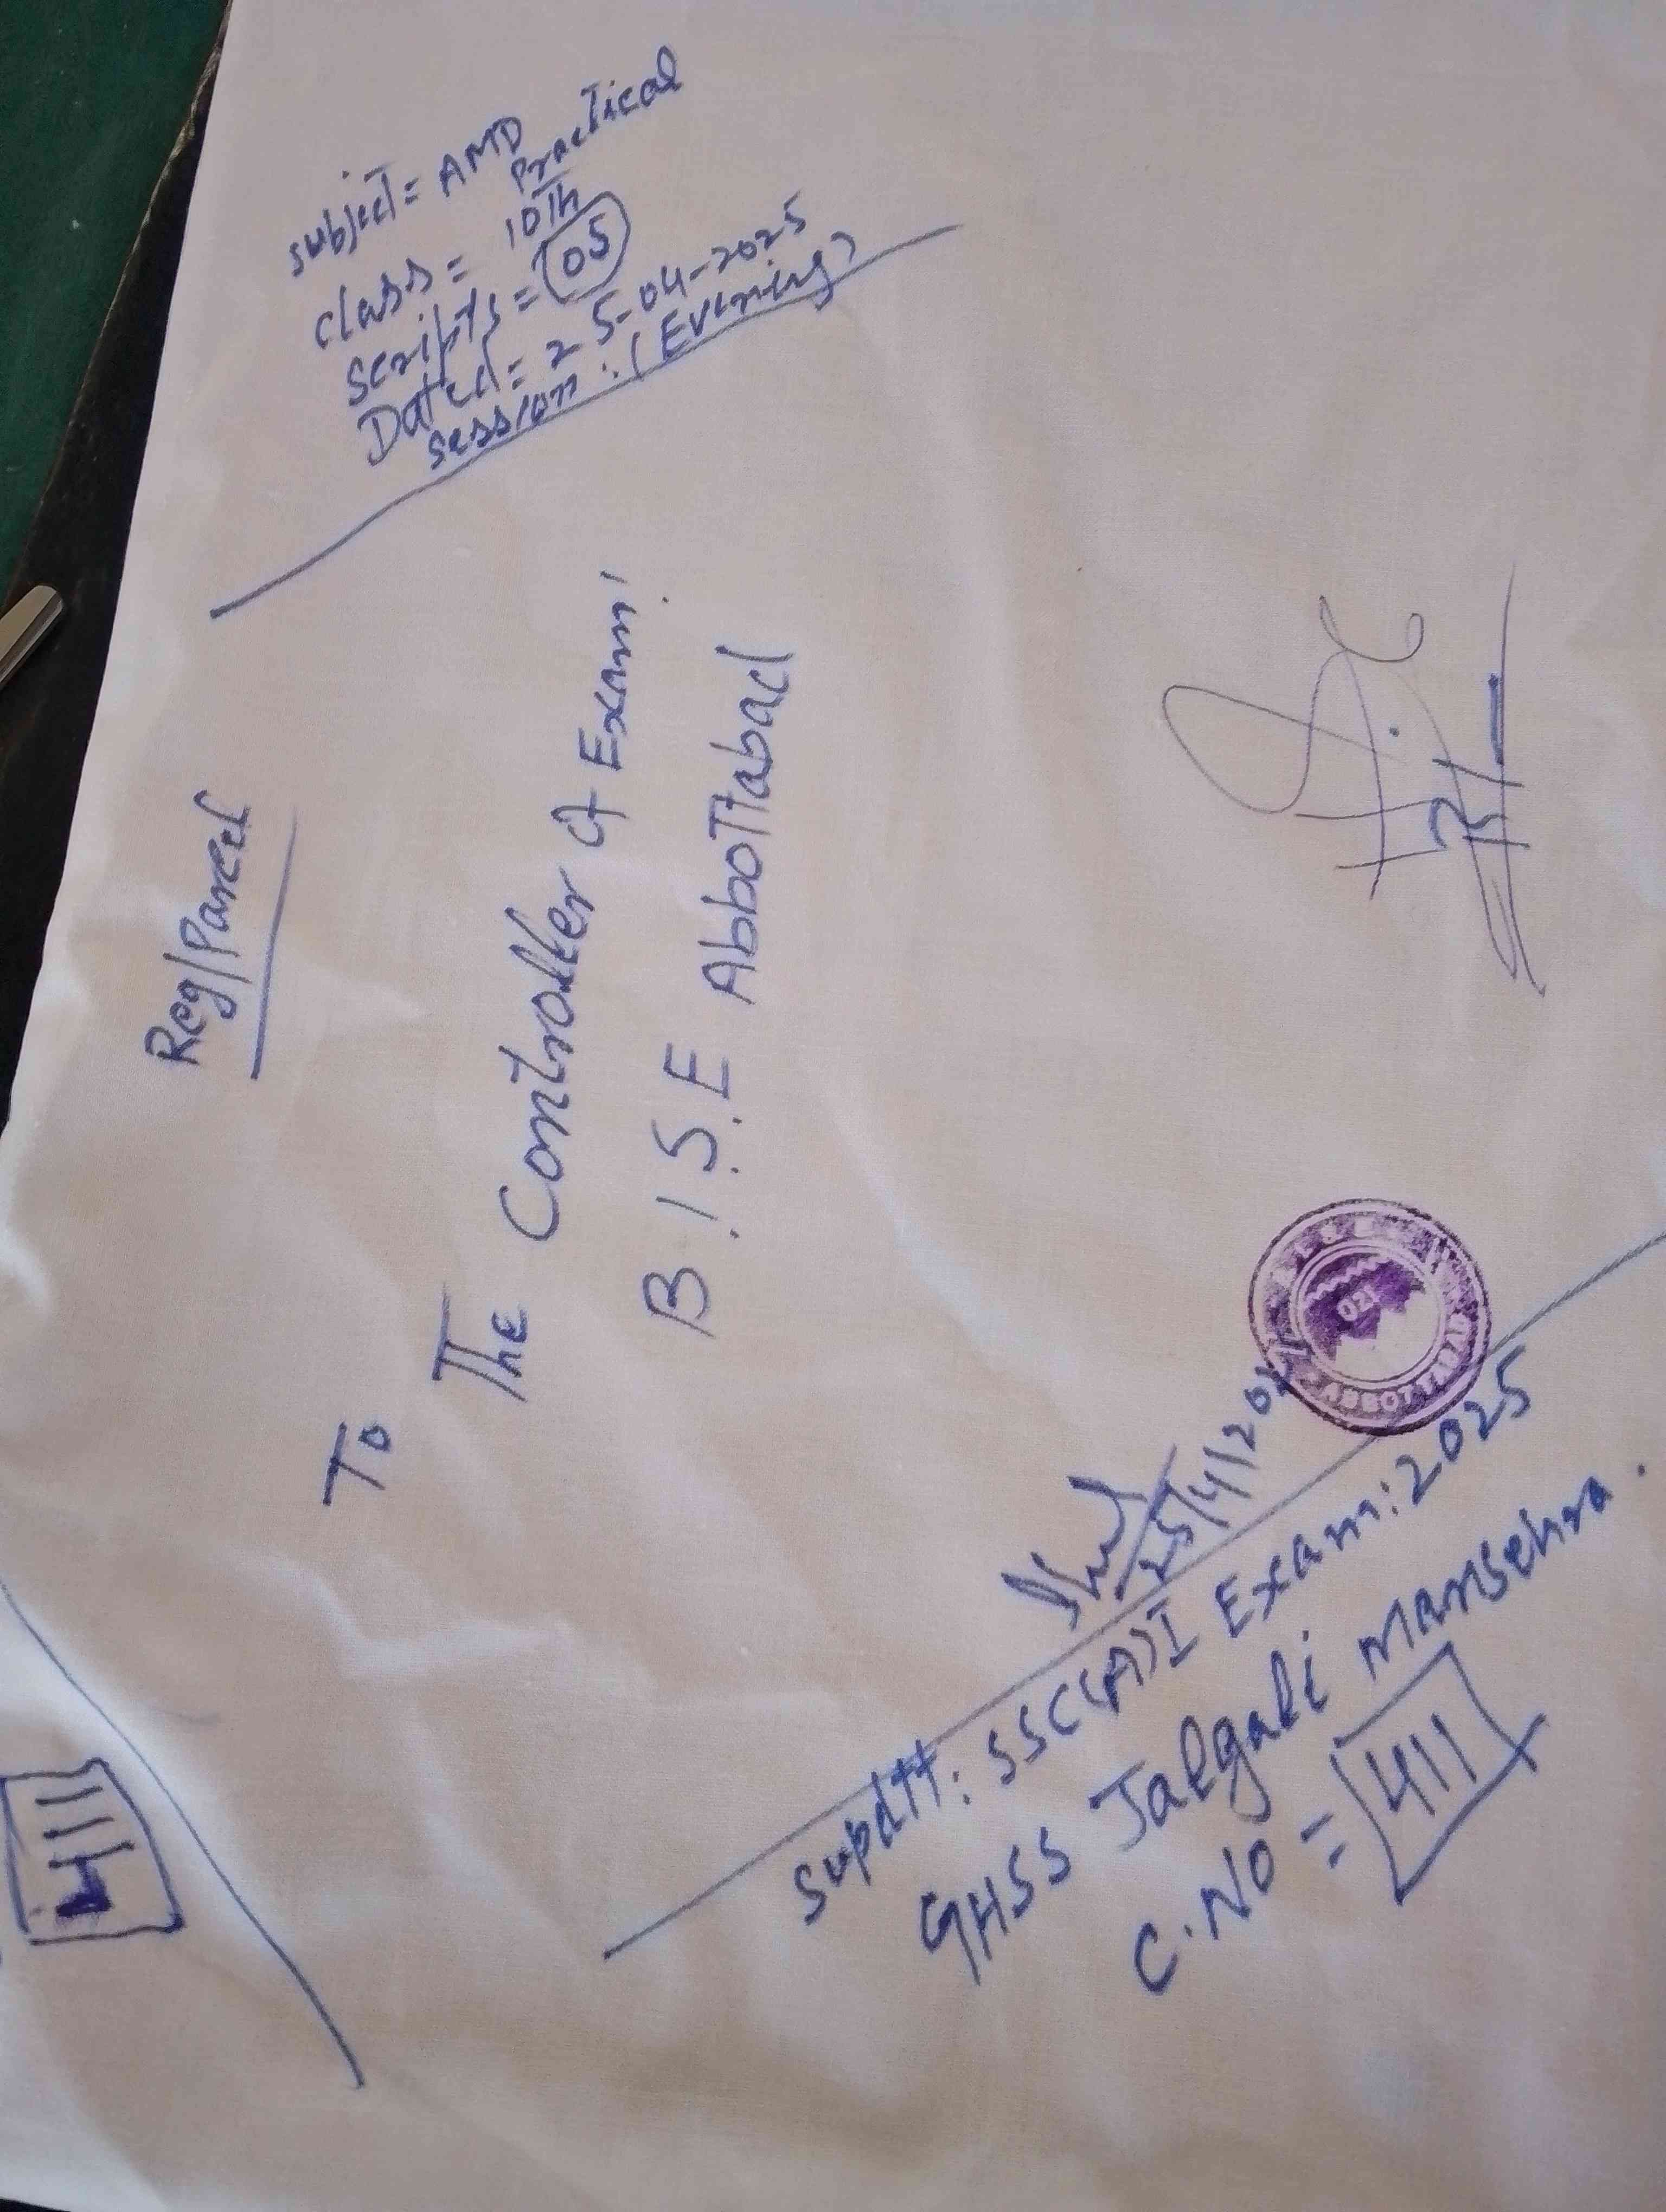 411
Reg/Parcel
Subject = AMD
Practical
Class = 10th
Scripts = 05
Dated = 25-04-2025
Session : (Evening)
To
The Controller of Exam:
B.I.S.E Abbottabad
25/4/202
ABBOTTABAD
Supdtt: SSC(A)I Exam: 2025
GHSS Jalgali Mansehra.
C.No = 411